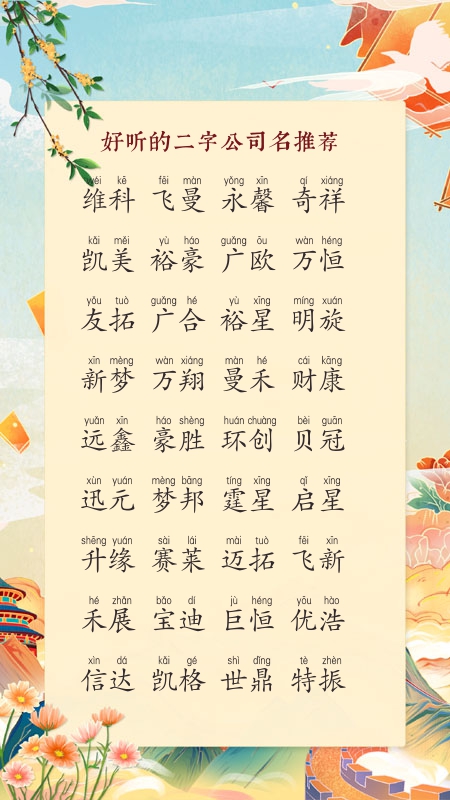 好听的二字公司名推荐
wéi kē fēi màn yǒng xīn qí xiáng
维科 飞曼 永馨 奇祥
kǎi měi yù háo guǎng ōu wàn héng
凯美 裕豪 广欧 万恒
yǒu tuò guǎng hé yù xīng míng xuán
友拓 广合 裕星 明旋
xīn mèng wàn xiáng màn hé cái kāng
新梦 万翔 曼禾 财康
yuǎn xīn háo shèng huán chuàng bèi guān
远鑫 豪胜 环创 贝冠
xùn yuán mèng bāng tíng xīng qǐ xīng
迅元 梦邦 霆星 启星
shēng yuán sài lái mài tuò fēi xīn
升缘 赛莱 迈拓 飞新
hé zhǎn bǎo dí jù héng yōu hào
禾展 宝迪 巨恒 优浩
xìn dá kǎi gé shì dǐng tè zhèn
信达 凯格 世鼎 特振